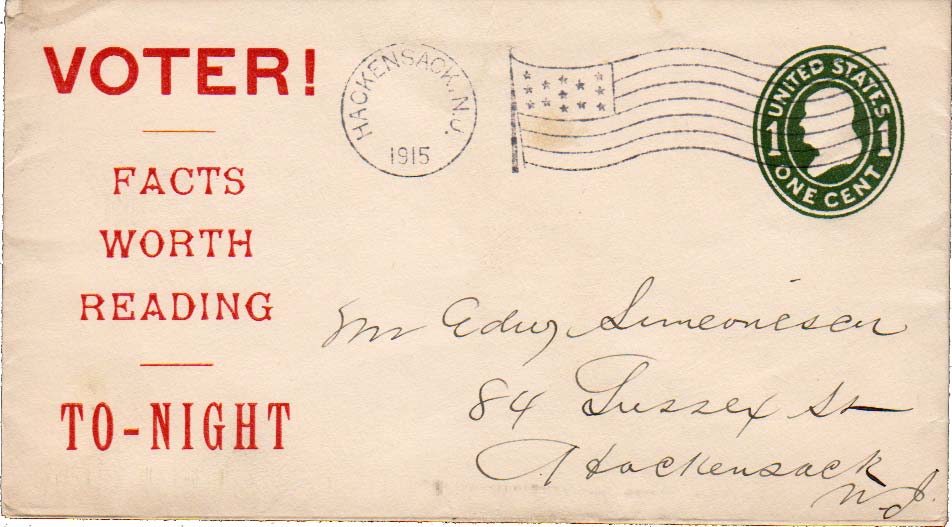 VOTER!
FACTS
WORTH
READING
TO-NIGHT
HACKENSACK, N.J.
1915
UNITED STATES
1 1
ONE CENT
Mr Edw Simeonisen
84 Sussex St
Hackensack
N J.